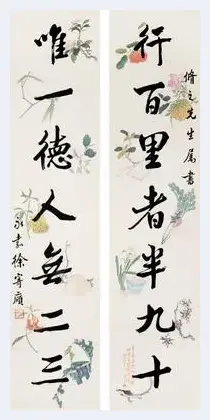 脩之先生屬書
行百里者半九十
唯一德人無二三
永嘉徐寄廎